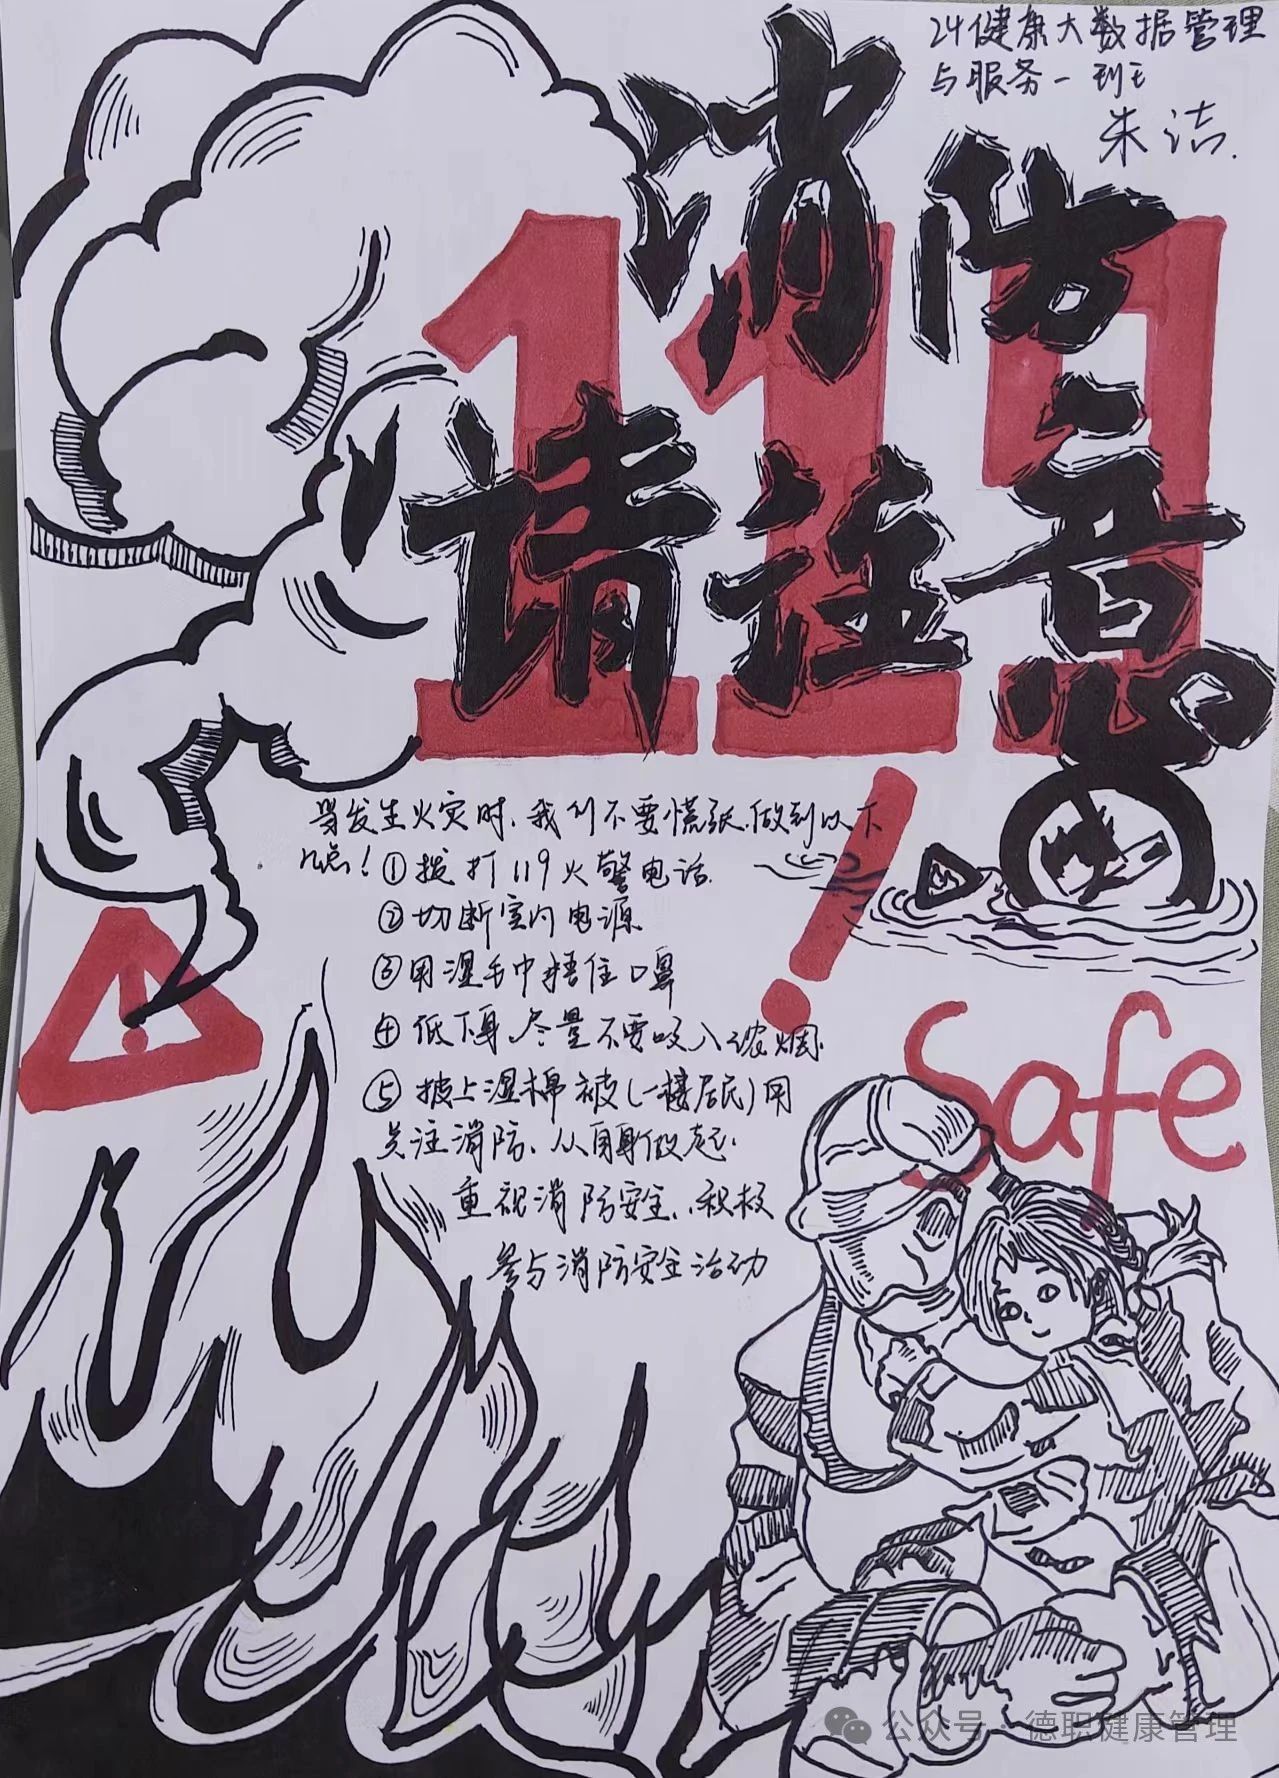 24健康大数据管理
与服务一班
朱洁.
119
消防
请注意
！
当发生火灾时、我们不要慌张.做到以下
几点！①拨打119火警电话.
②切断室内电源
③用湿毛巾捂住口鼻
④低下身、尽量不要吸入浓烟.
⑤披上湿棉被(一楼居民)用
关注消防、从自身做起.
重视消防安全.积极
参与消防安全活动
!
Safe
公众号·德职健康管理